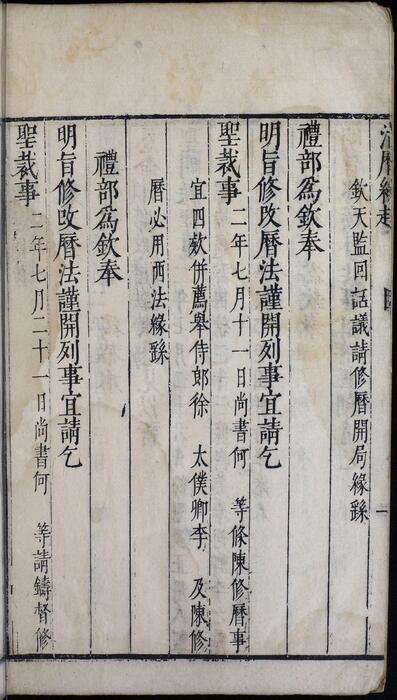 治曆緣起
欽天監回話議請修曆開局緣繇
禮部爲欽奉
明旨修改曆法謹開列事宜請乞
聖裁事 二年七月十一日尚書何 等條陳修曆事
宜四欵併薦舉侍郎徐 太僕卿李 及陳修
曆必用西法緣繇
禮部爲欽奉
明旨修改曆法謹開列事宜請乞
聖裁事 二年七月二十一日尚書何 等請鑄督修